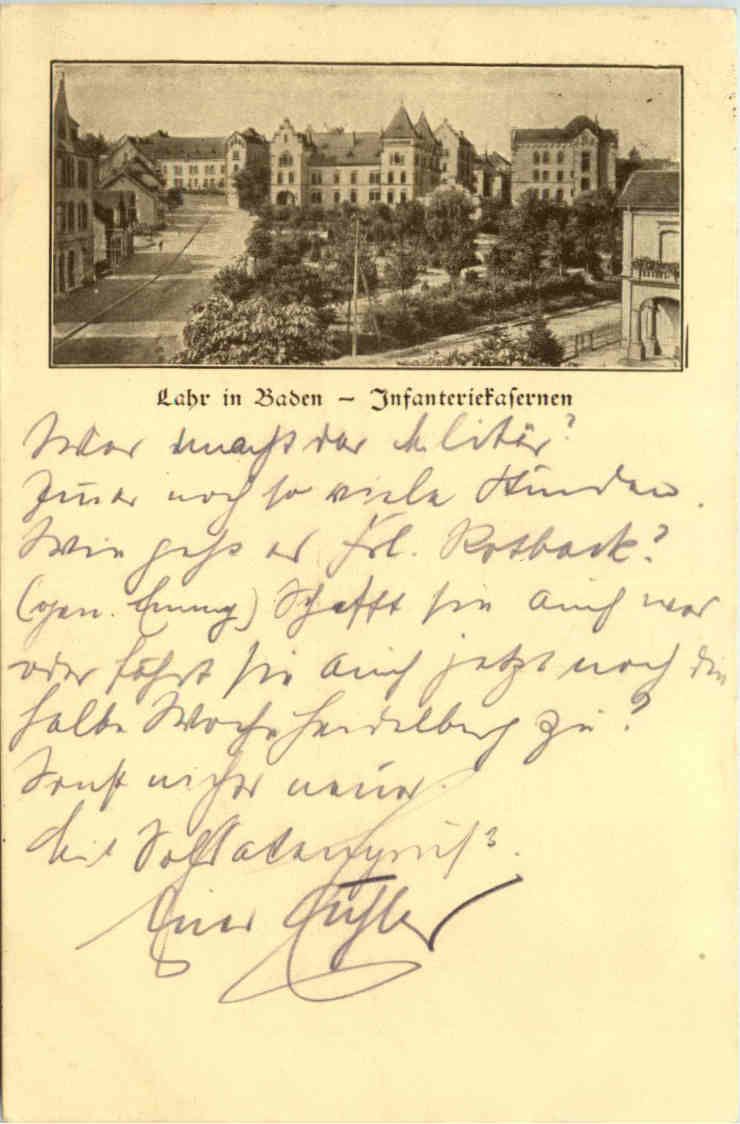 Lahr in Baden – Infanteriekasernen
Was macht das Militär?
Immer noch so viele Stunden.
Wie geht es Frl. Rotback?
(gen. Emmy) Schafft sie auch was
oder fährt sie auch jetzt noch die
halbe Woche Heidelberg zu?
Sonst nichts neues.
Mit Soldatengruß